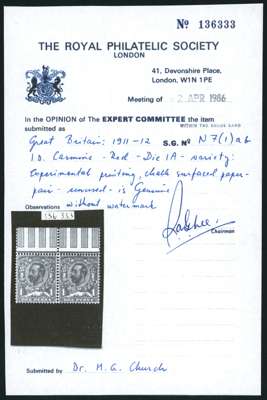 No 136333
THE ROYAL PHILATELIC SOCIETY
LONDON
41, Devonshire Place,
London, W1N 1PE
Meeting of 2 APR 1986
In the OPINION of The EXPERT COMMITTEE the item
submitted as
Great Britain: 1911-12 S.G. No N7(1)ab
1D. Carmine-Red-Die 1A-variety:
Experimental printing, chalk surfaced paper-
pair-unused-is Genuine
Observations without watermark
136 333
Chairman
Submitted by Dr. M.G. Church